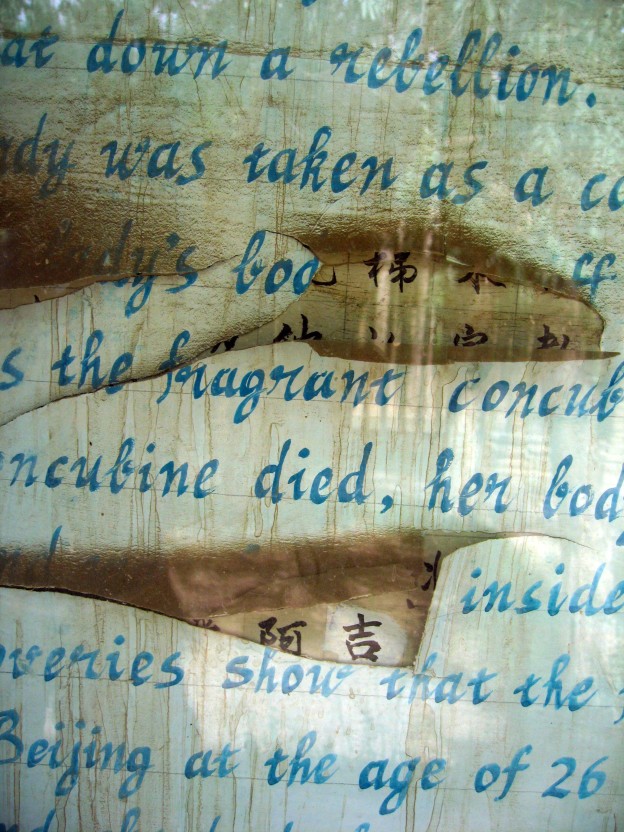 at down a rebellion.
ady was taken as a co
lady's bod
梯
s the fragrant concub
ncubine died, her bod
inside
阿吉
overies show that the
Beijing at the age of 26